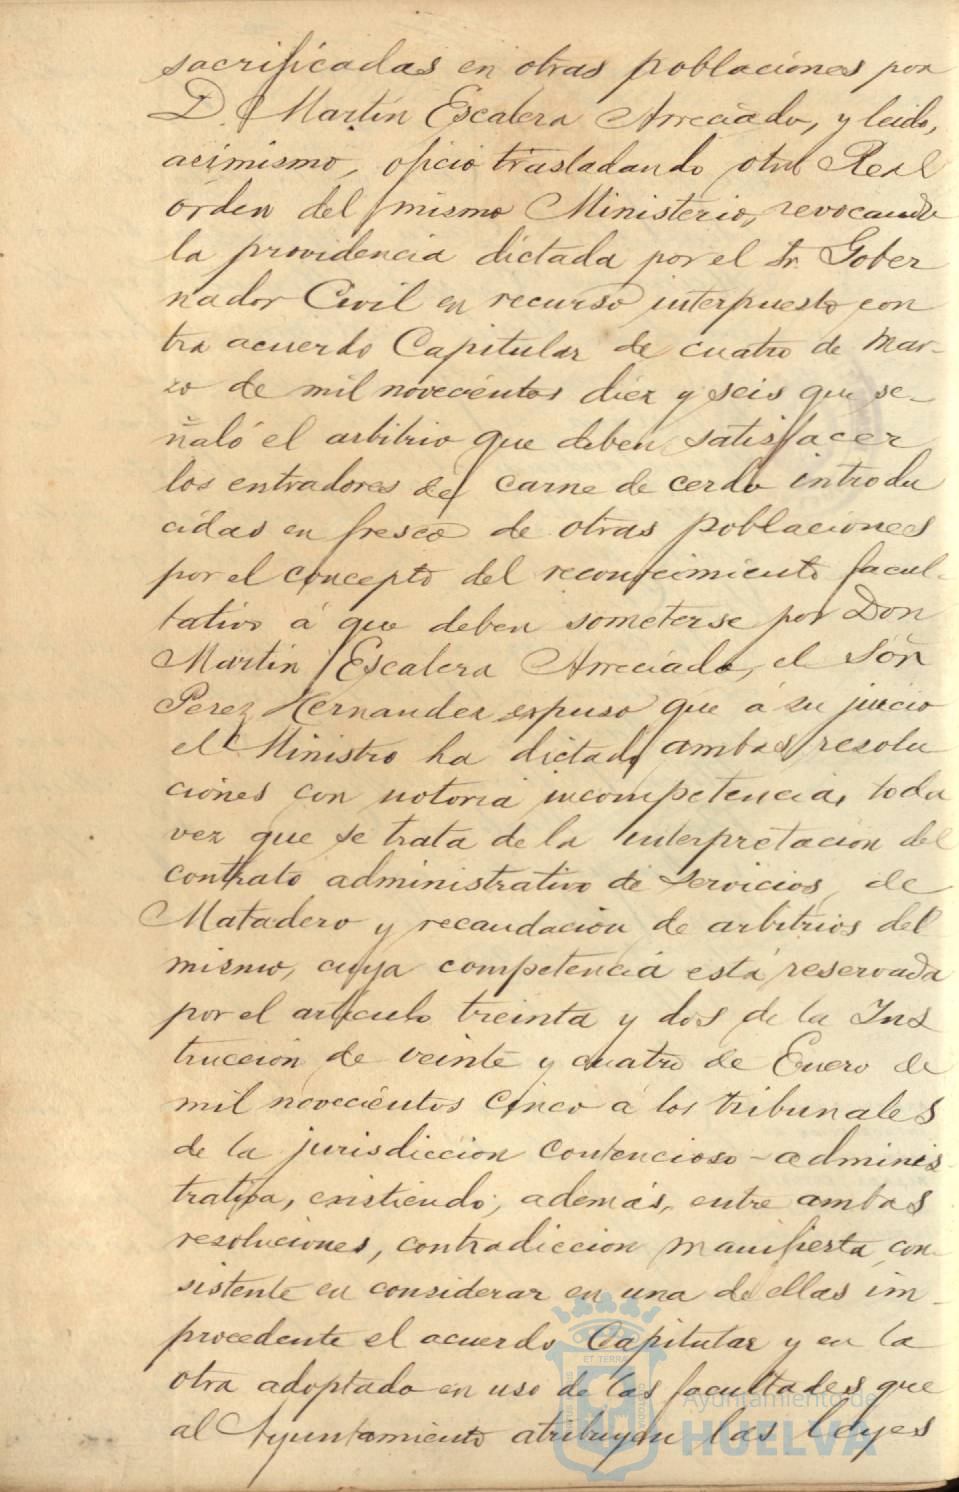 sacrificadas en otras poblaciones por
D. Martín Escalera Arreciado, y leido,
acimismo, oficio trasladando otra Real
órden del mismo Ministerio, revocando
la providencia dictada por el Sr. Gober
nador Civil en recurso interpuesto con
tra acuerdo Capitular de cuatro de Mar-
zo de mil novecientos diez y seis que se-
ñaló el arbitrio que deben satisfacer
los entradores de carne de cerdo introdu
cidas en fresco de otras poblaciones
por el concepto del reconocimiento facul-
tativo á que deben someterse por Don
Martín Escalera Arreciado, el Señr
Perez Hernandez expuso que á su juicio
el Ministro ha dictado ambas resolu
ciones con notoria incompetencia, toda
vez que se trata de la interpretación del
contrato administrativo de servicios, de
Matadero y recaudación de arbitrios del
mismo, cuya competencia está reservada
por el artículo treinta y dos de la Ins
trucción de veinte y cuatro de Enero de
mil novecientos cinco á los tribunales
de la jurisdicción contencioso-adminis
trativa, existiendo, además, entre ambas
resoluciones, contradiccion manifiesta con-
sistente en considerar en una de ellas im-
procedente el acuerdo Capitular y en la
otra adoptado en uso de las facultades que
al Ayuntamiento atribuyen las leyes
ET TERRA
Ayuntamiento de
HUELVA